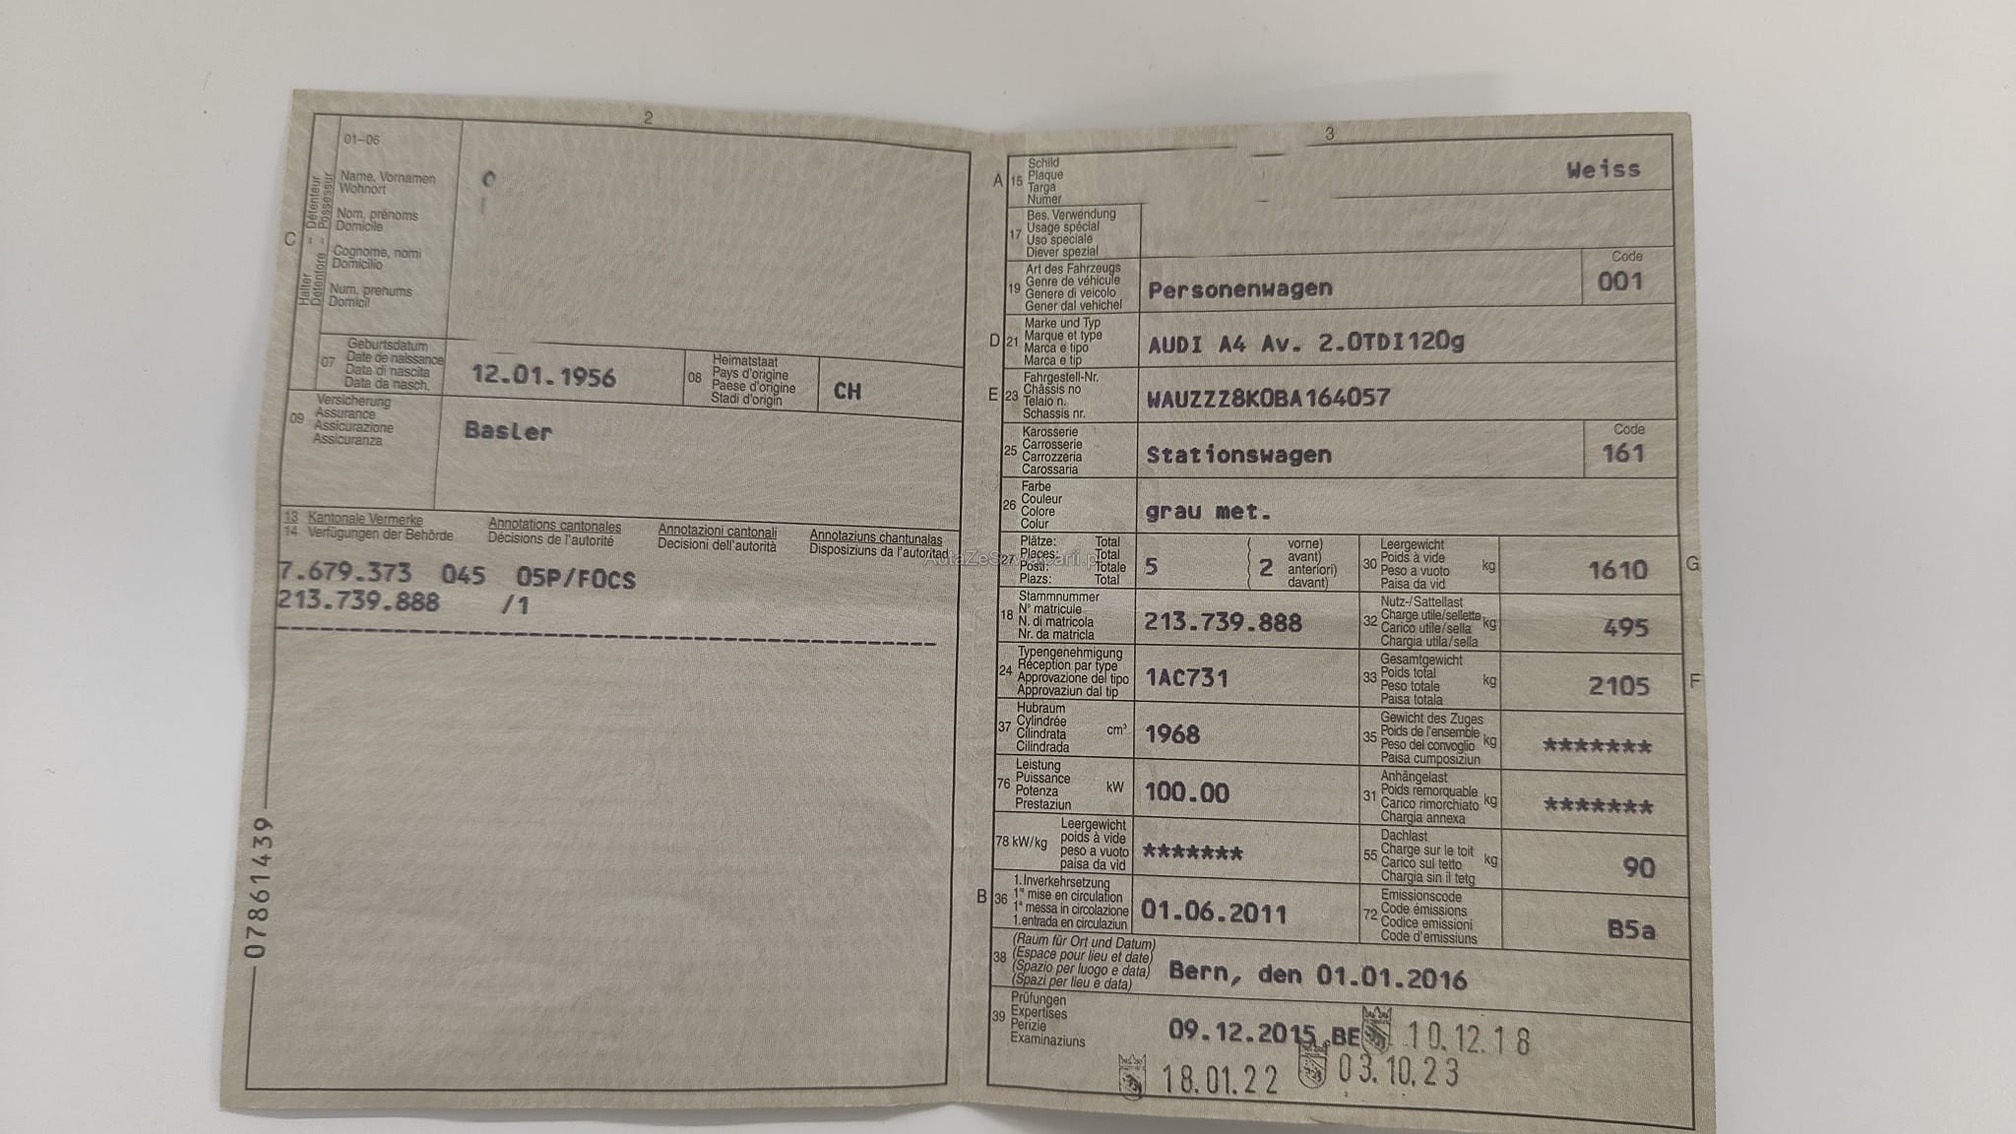 2
01–06
C
Halter – Détenteur
Detentore – Possesseur
Name, Vornamen
Wohnort
Nom, prénoms
Domicile
Cognome, nomi
Domicilio
Num, prenums
Domicil
07
Geburtsdatum
Date de naissance
Data di nascita
Data da nasch.
12.01.1956
08
Heimatstaat
Pays d'origine
Paese d'origine
Stadi d'origin
CH
09
Versicherung
Assurance
Assicurazione
Assicuranza
Basler
13 Kantonale Vermerke Annotations cantonales Annotazioni cantonali Annotaziuns chantunalas
14 Verfügungen der Behörde Décisions de l'autorité Decisioni dell'autorità Disposiziuns da l'autoritad
7.679.373 045 05P/FOCS
213.739.888 /1
078614439
3
A 15
Schild
Plaque
Targa
Numer
Weiss
17
Bes. Verwendung
Usage spécial
Uso speciale
Diever spezial
19
Art des Fahrzeugs
Genre de véhicule
Genere di veicolo
Gener dal vehichel
Personenwagen
Code
001
D 21
Marke und Typ
Marque et type
Marca e tipo
Marca e tip
AUDI A4 Av. 2.0TDI120g
E 23
Fahrgestell-Nr.
Châssis no
Telaio n.
Schassis nr.
WAUZZZ8K0BA164057
25
Karosserie
Carrosserie
Carrozzeria
Carossaria
Stationswagen
Code
161
26
Farbe
Couleur
Colore
Colur
grau met.
27
Plätze: Total
Places: Total
Posti: Totale
Plazs: Total
5
2
vorne)
avant)
anteriori)
davant)
30
Leergewicht
Poids à vide
Peso a vuoto
Paisa da vid
kg
1610
G
18
Stammnummer
N° matricule
N. di matricola
Nr. da matricla
213.739.888
32
Nutz-/Sattellast
Charge utile/sellette
Carico utile/sella
Chargia utila/sella
kg
495
24
Typengenehmigung
Réception par type
Approvazione del tipo
Approvaziun dal tip
1AC731
33
Gesamtgewicht
Poids total
Peso totale
Paisa totala
kg
2105
F
37
Hubraum
Cylindrée
Cilindrata
Cilindrada
cm³
1968
35
Gewicht des Zuges
Poids de l'ensemble
Peso del convoglio
Paisa cumposiziun
kg
*******
76
Leistung
Puissance
Potenza
Prestaziun
kW
100.00
31
Anhängelast
Poids remorquable
Carico rimorchiato
Chargia annexa
kg
*******
78 kW/kg
Leergewicht
poids à vide
peso a vuoto
paisa da vid
*******
55
Dachlast
Charge sur le toit
Carico sul tetto
Chargia sin il tetg
kg
90
B 36
1.Inverkehrsetzung
1re mise en circulation
1a messa in circolazione
1.entrada en circulaziun
01.06.2011
72
Emissionscode
Code émissions
Codice emissioni
Code d'emissiuns
B5a
38
(Raum für Ort und Datum)
(Espace pour lieu et date)
(Spazio per luogo e data)
(Spazi per lieu e data)
Bern, den 01.01.2016
39
Prüfungen
Expertises
Perizie
Examinaziuns
09.12.2015,BE 10.12.18
18.01.22 03.10.23